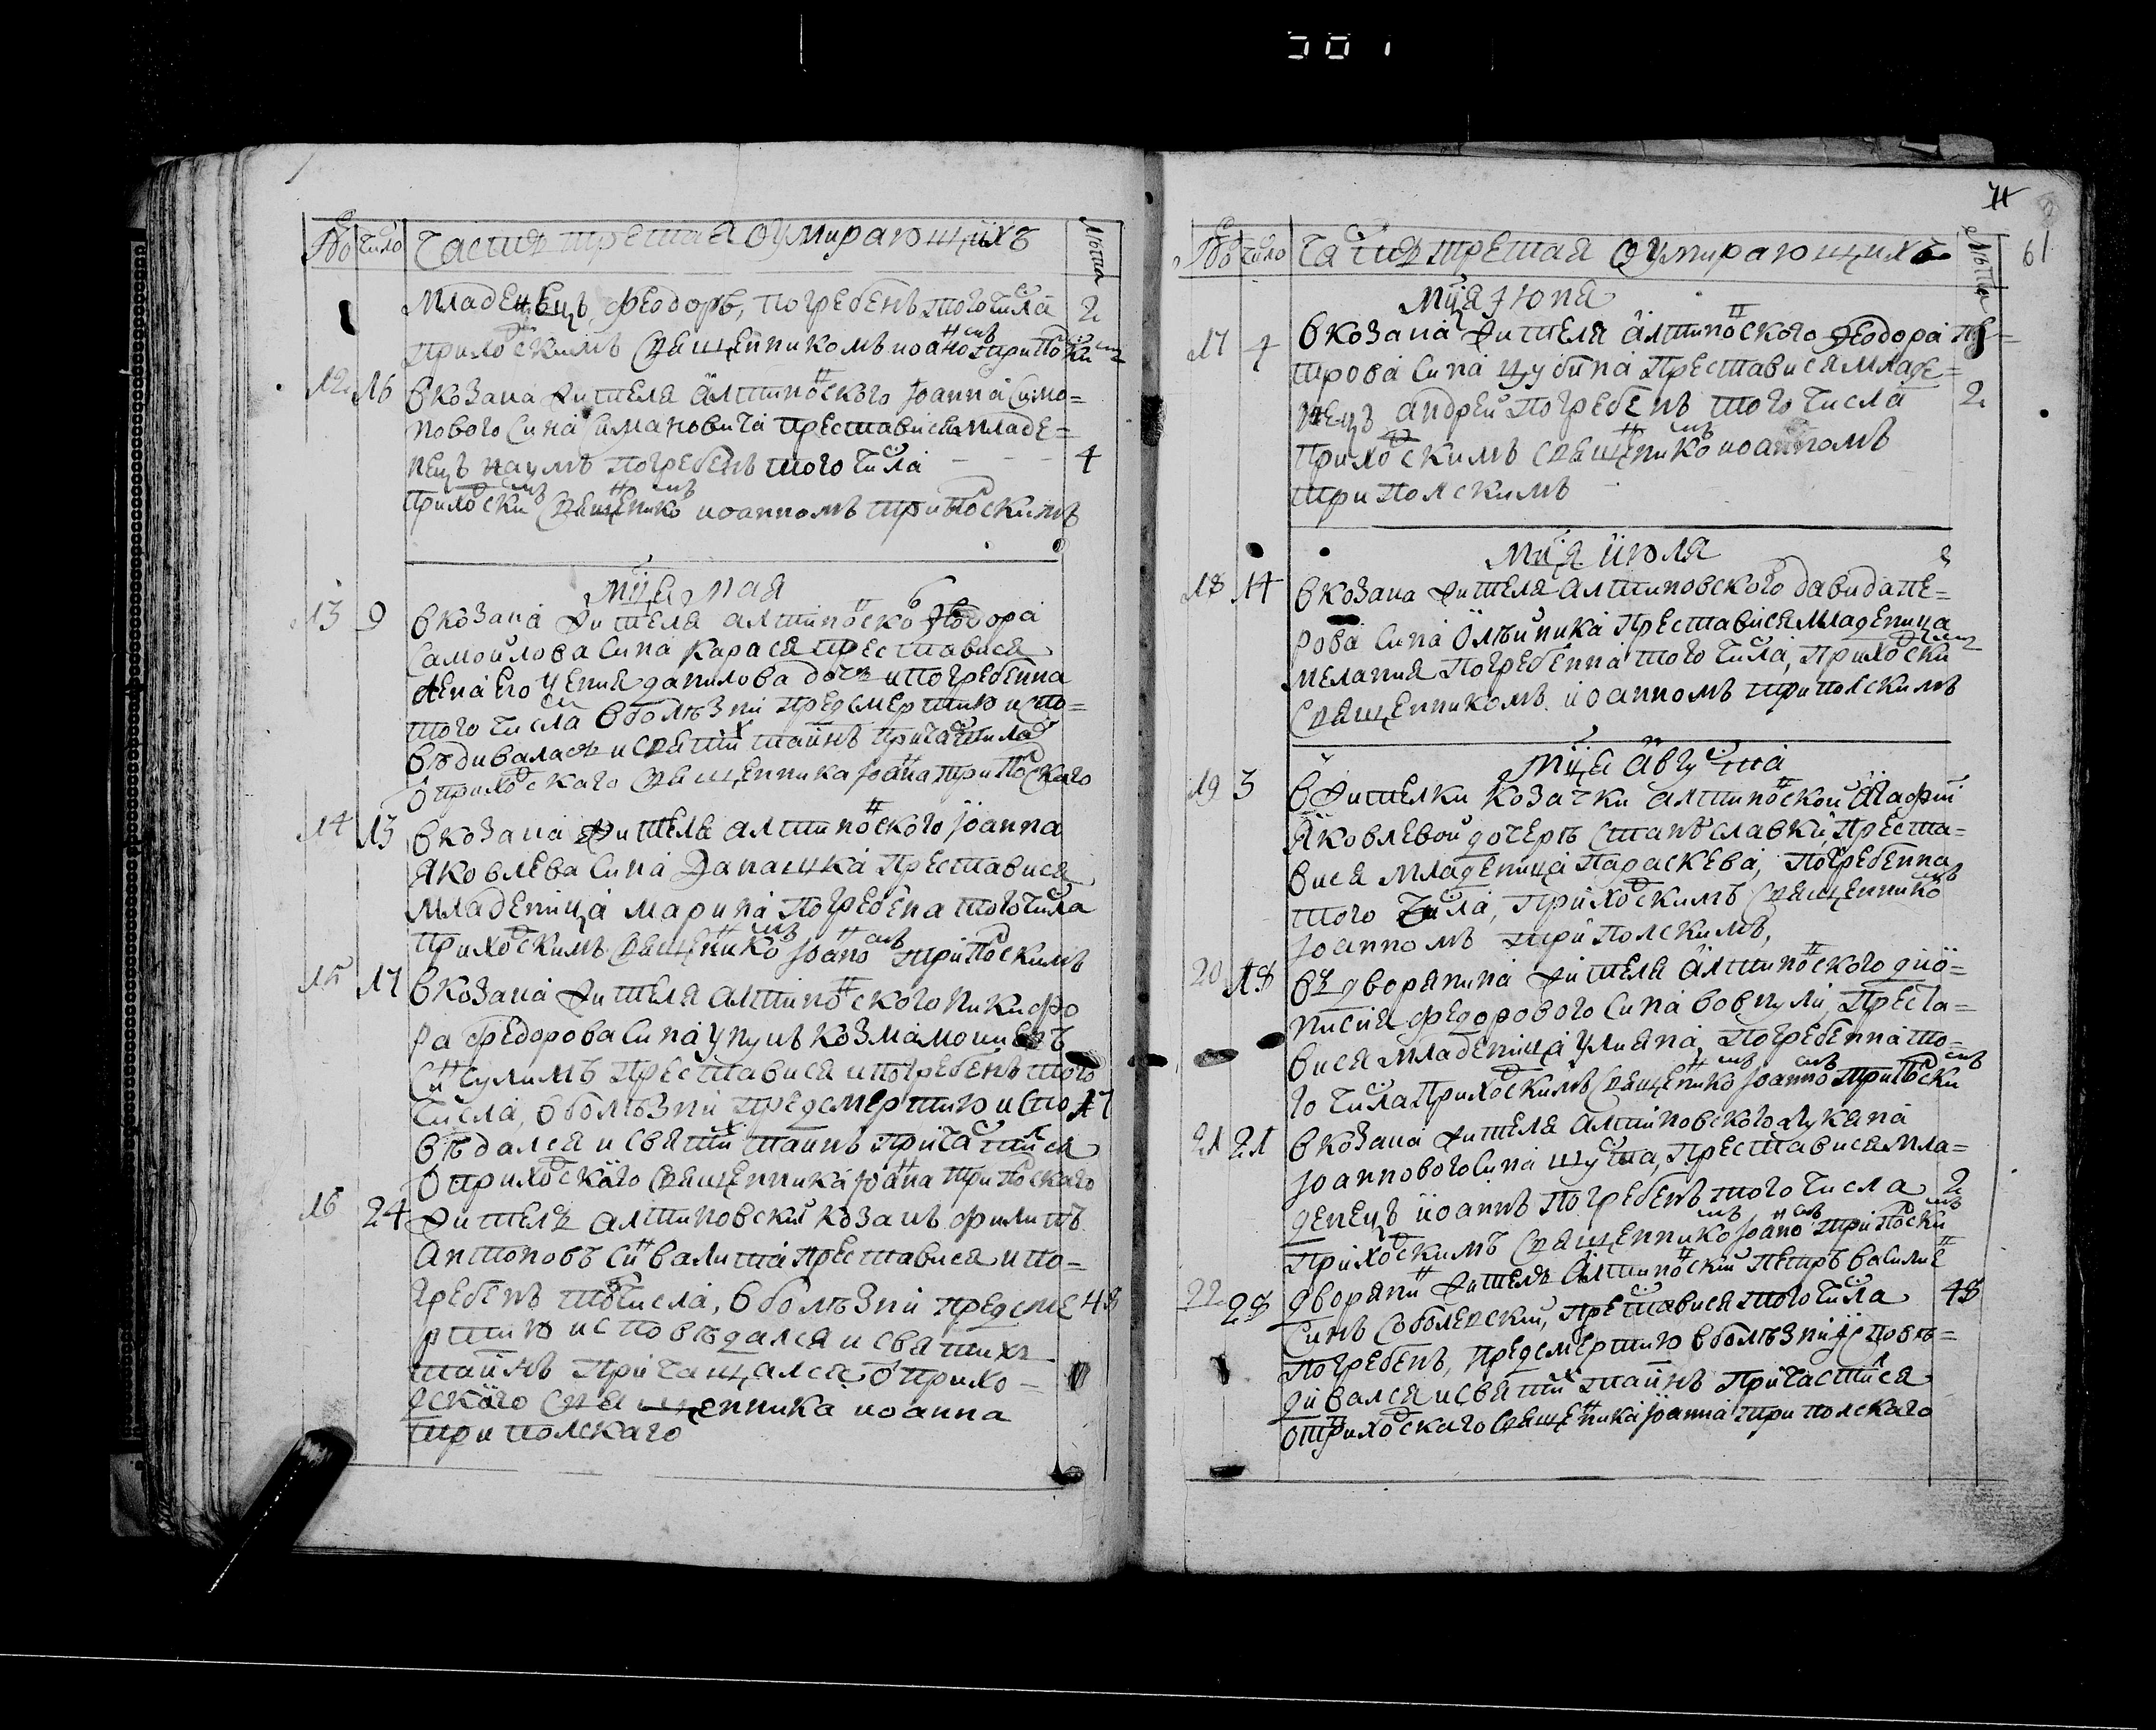 Число Часть третая оумирающихъ лѣта
младенецъ феодоръ, погребенъ того числа 2
приходскимъ священникомъ иоанномъ триполским
12 16 в козака жителя алтиновского иоанна симо=
нового сина прествися младе=
нецъ наумъ погребенъ того числа - - - 4
приходским священником иоанномъ триполскимъ
мца мая
13 9 в козака жителя алтиновского феодора
самойлова сина карася преставися
жена его данилова дочь и погребенна
того числа в болѣзни пред смертию испо=
вѣдивалась и святих таинъ причастилас
от приходскаго священника иоанна триполскаго
14 13 в козака жителя алтиновского иоанна
яковлева сина преставися
младеница марина погребена того числа
приходскимъ священником иоаном триполскимъ
15 17 в козака жителя алтиновского никифо
ра федорова сина козма
син преставися и погребенъ того
числа, в болѣзни пред смертию испо 17
вѣдался и святих таинъ причастился
от приходскаго священника иоана триполскаго
16 24 житель алтиновский козакъ филипъ
антоновъ син валита преставися и по=
гребенъ того числа, в болѣзни пред сме 48
ртию исповѣдался и святихъ
таинъ причащался от прихо=
дскаго священника иоанна
триполскаго
71
Число Часть третая оумирающихъ лѣта 61
мца июня
17 4 в козака жителя алтиновского феодора пе=
трова сина цубина преставися младе=
нецъ андрей погребенъ того числа 2
приходскимъ священником иоанномъ
триполскимъ
мця июля
18 14 в козака жителя алтиновского давида пе=
рова сина олѣйника преставися младеница
мелания погребенна того числа, приходским
священникомъ иоанномъ триполскимъ
мца августа
19 3 в жителки козачки алтиновской агафии
яковлевой дочери преста=
вися младеница параскева, погребенна
того числа, приходскимъ священником
иоанномъ триполскимъ,
20 18 въ дворянина жителя алтиновского дио=
нисия федорового сина преста=
вися младеница улияна, погребенна то=
го числа приходскимъ священником иоанном триполским
21 21 в козака жителя алтиновского лукана
иоаннового сина шуста, преставися мла=
денецъ иоаннъ погребенъ того числа 2
приходскимъ священником иоаном триполским
22 28 дворянин житель алтиновский петръ василие
синъ соболевский, преставися того числа 48
погребенъ, пред смертию в болѣзни исповѣ=
дивался и святих таинъ причастился
от приходскаго священника иоанна триполскаго